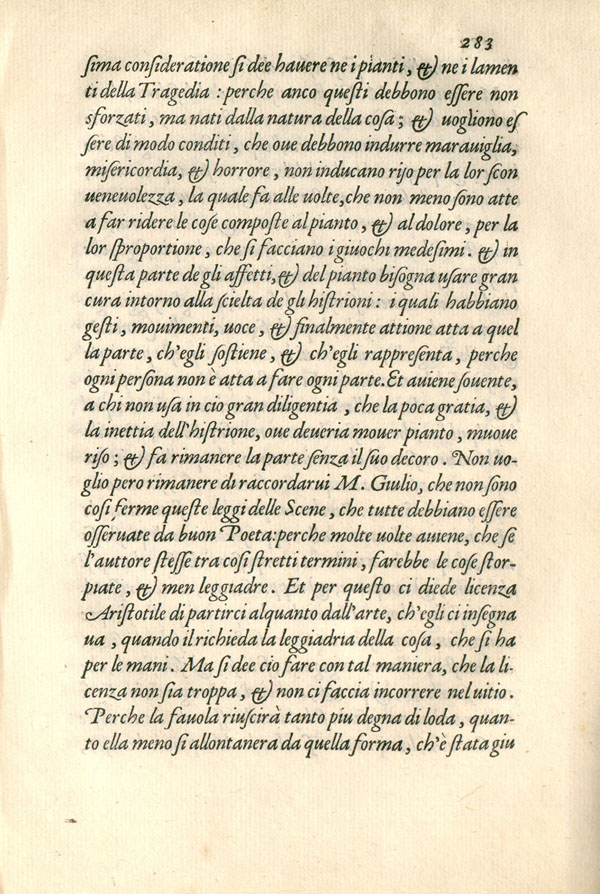 283
sima consideratione si dee hauere ne i pianti, & ne i lamen
ti della Tragedia : perche anco questi debbono essere non
sforzati, ma nati dalla natura della cosa ; & uogliono es
sere di modo conditi, che oue debbono indurre marauiglia,
misericordia, & horrore, non inducano riso per la lor scon
ueneuolezza, la quale fa alle uolte, che non meno sono atte
a far ridere le cose composte al pianto, & al dolore, per la
lor sproportione, che si facciano i giuochi medesimi. & in
questa parte de gli affetti, & del pianto bisogna usare gran
cura intorno alla scielta de gli histrioni : i quali habbiano
gesti, mouimenti, uoce, & finalmente attione atta a quel
la parte, ch'egli sostiene, & ch'egli rappresenta, perche
ogni persona non è atta a fare ogni parte. Et auiene souente,
a chi non usa in cio gran diligentia, che la poca gratia, &
la inettia dell'histrione, oue deueria mouer pianto, muoue
riso ; & fa rimanere la parte senza il suo decoro. Non uo-
glio pero rimanere di raccordarui M. Giulio, che non sono
cosi ferme queste leggi delle Scene, che tutte debbiano essere
osseruate da buon Poeta: perche molte uolte auiene, che se
l'auttore stesse tra cosi stretti termini, farebbe le cose stor-
piate, & men leggiadre. Et per questo ci diede licenza
Aristotile di partirci alquanto dall'arte, ch'egli ci insegna
ua, quando il richieda la leggiadria della cosa, che si ha
per le mani. Ma si dee cio fare con tal maniera, che la li-
cenza non sia troppa, & non ci faccia incorrere nel uitio.
Perche la fauola riuscirà tanto piu degna di loda, quan-
to ella meno si allontanera da quella forma, ch'è stata giu